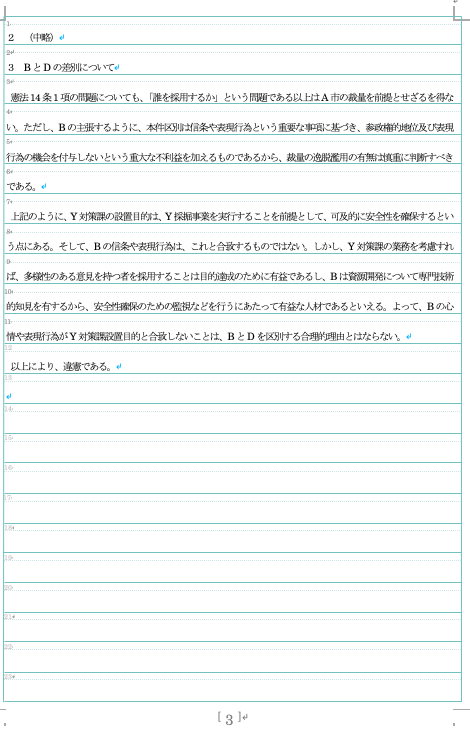 1
2 （中略）
2
3 BとDの差別について
3
憲法14条1項の問題についても、「誰を採用するか」という問題である以上はA市の裁量を前提とせざるを得な
4
い。ただし、Bの主張するように、本件区別は信条や表現行為という重要な事項に基づき、参政権的地位及び表現
5
行為の機会を付与しないという重大な不利益を加えるものであるから、裁量の逸脱濫用の有無は慎重に判断すべき
6
である。
7
上記のように、Y対策課の設置目的は、Y採掘事業を実行することを前提として、可及的に安全性を確保するとい
8
う点にある。そして、Bの信条や表現行為は、これと合致するものではない。しかし、Y対策課の業務を考慮すれ
9
ば、多様性のある意見を持つ者を採用することは目的達成のために有益であるし、Bは資源開発について専門技術
10
的知見を有するから、安全性確保のための監視などを行うにあたって有益な人材であるといえる。よって、Bの心
11
情や表現行為がY対策課設置目的と合致しないことは、BとDを区別する合理的理由とはならない。
12
以上により、違憲である。
13
14
15
16
17
18
19
20
21
22
23
[ 3 ]